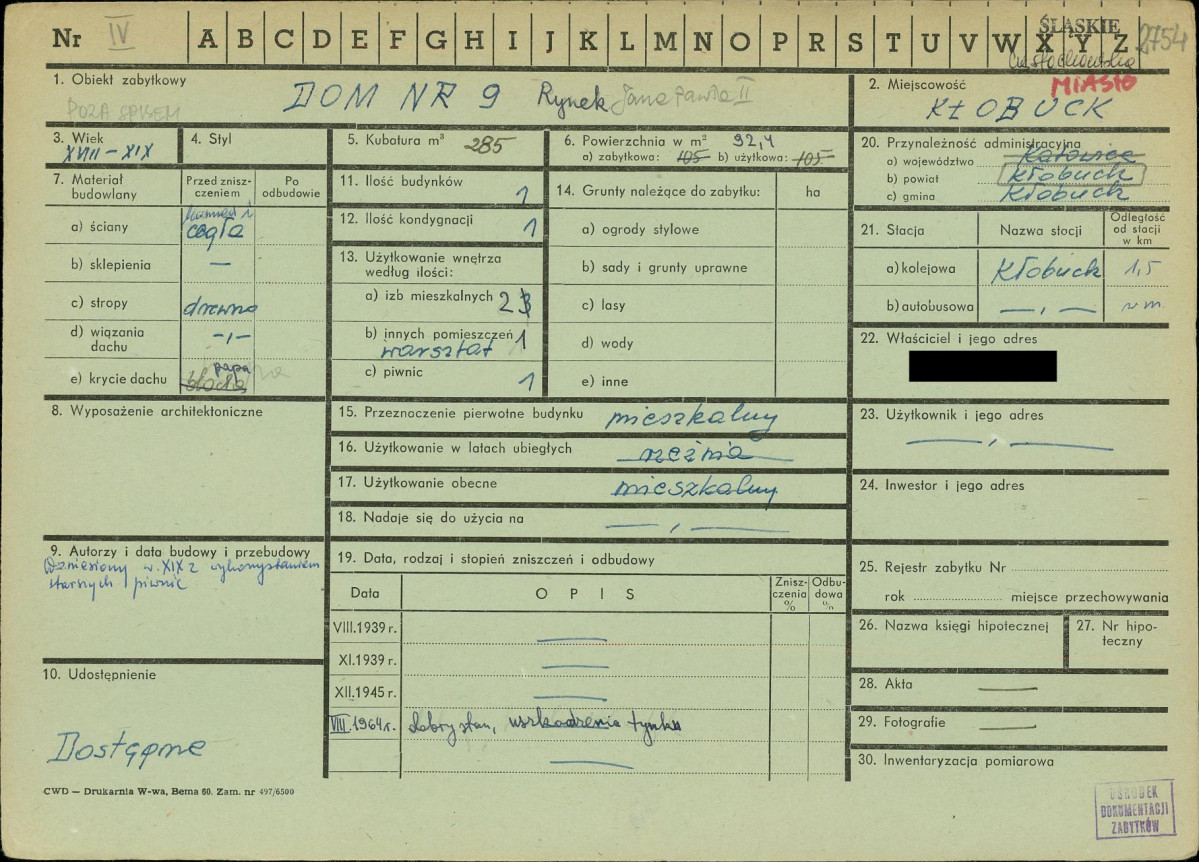 Nr IV A B C D E F G H I J K L M N O P R S T U V W X Y Z 2754
ŚLĄSKIE
częstochowskie
1. Obiekt zabytkowy
POZA SPISEM
DOM NR 9 Rynek Jana Pawła II
2. Miejscowość
MIASTO
KŁOBUCK
3. Wiek
XVIII – XIX
4. Styl
5. Kubatura m³ 285
6. Powierzchnia w m² 92,4
a) zabytkowa: 105 b) użytkowa: 105
7. Materiał budowlany
Przed zniszczeniem
Po odbudowie
a) ściany kamień i cegła
b) sklepienia —
c) stropy drewno
d) wiązania dachu -„-
e) krycie dachu blacha papa
8. Wyposażenie architektoniczne
9. Autorzy i data budowy i przebudowy
Wzniesiony w. XIX z wykorzystaniem
starszych piwnic
10. Udostępnienie
Dostępne
11. Ilość budynków 1
12. Ilość kondygnacji 1
13. Użytkowanie wnętrza
według ilości:
a) izb mieszkalnych 2 3
b) innych pomieszczeń 1
warsztat
c) piwnic 1
14. Grunty należące do zabytku: ha
a) ogrody stylowe
b) sady i grunty uprawne
c) lasy
d) wody
e) inne
15. Przeznaczenie pierwotne budynku mieszkalny
16. Użytkowanie w latach ubiegłych rzeźnia
17. Użytkowanie obecne mieszkalny
18. Nadaje się do użycia na —„—
19. Data, rodzaj i stopień zniszczeń i odbudowy
Data OPIS Zniszczenia % Odbudowa %
VIII.1939 r. —
XI.1939 r. —
XII.1945 r. —
VIII.1964 r. dobry stan, uszkodzenia tynku
—
20. Przynależność administracyjna
a) województwo Katowice
b) powiat Kłobuck
c) gmina Kłobuck
21. Stacja Nazwa stocji Odległość od stacji w km
a) kolejowa Kłobuck 1,5
b) autobusowa —„— w m.
22. Właściciel i jego adres
23. Użytkownik i jego adres
—„—
24. Inwestor i jego adres
25. Rejestr zabytku Nr
rok miejsce przechowywania
26. Nazwa księgi hipotecznej
27. Nr hipoteczny
28. Akta —
29. Fotografie —
30. Inwentaryzacja pomiarowa
CWD — Drukarnia W-wa, Bema 60. Zam. nr 497/6500
OŚRODEK
DOKUMENTACJI
ZABYTKÓW